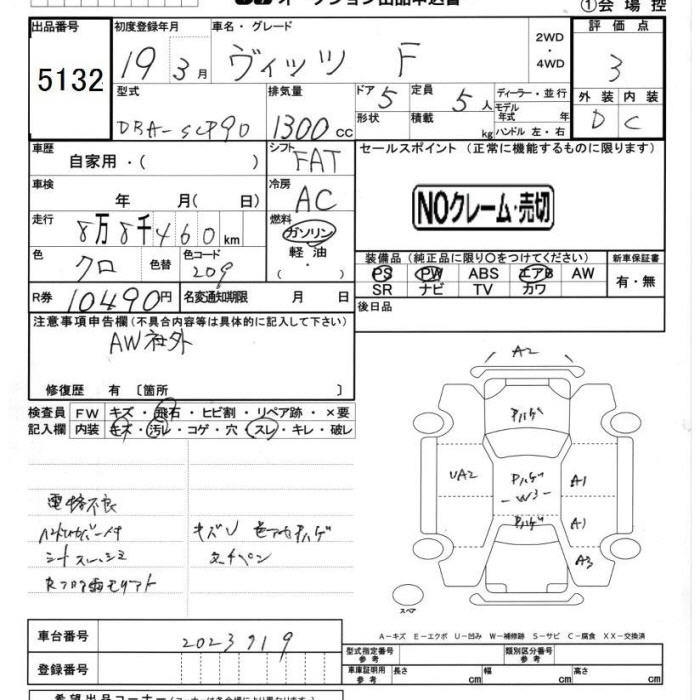 オークション出品申込書
①会場控
出品番号 初度登録年月 車名・グレード 2WD・4WD 評価点
5132 19 3月 ヴィッツ F 3
型式 排気量 ドア 5 定員 5人 ディーラー・並行 外装 内装
DBA-SCP90 1300cc 形状 積載 kg モデル年式 年 ハンドル 左・右 D C
車歴 自家用・( ) シフト FAT セールスポイント (正常に機能するものに限ります)
車検 年 月( 日) 冷房 AC NOクレーム・売切
走行 8万8千460km 燃料 ガソリン 軽油
色 クロ 色替 色コード 209 装備品 (純正品に限り○をつけてください) 新車保証書
PS PW ABS エアB AW 有・無
SR ナビ TV カワ
R券 10490円 名変通知期限 月 日 後日品
注意事項申告欄(不具合内容等は具体的に記入して下さい)
AW社外
修復歴 有 〔箇所 〕
検査員 FW キズ・飛石・ヒビ割・リペア跡・×要
記入欄 内装 キズ・汚レ・コゲ・穴・スレ・キレ・破レ
A2
Pハゲ
UA2 Pハゲ A1
W3
Pハゲ A1
A3
電格不良
キズU
シートスレ シミ タッチペン
スペア
A-キズ E-エクボ U-凹み W-補修跡 S-サビ C-腐食 XX-交換済
車台番号 2023719
型式指定番号 参考 類別区分番号 参考
登録番号 車庫証明用 参考 長さ cm 幅 cm 高さ cm
希望出品コーナー